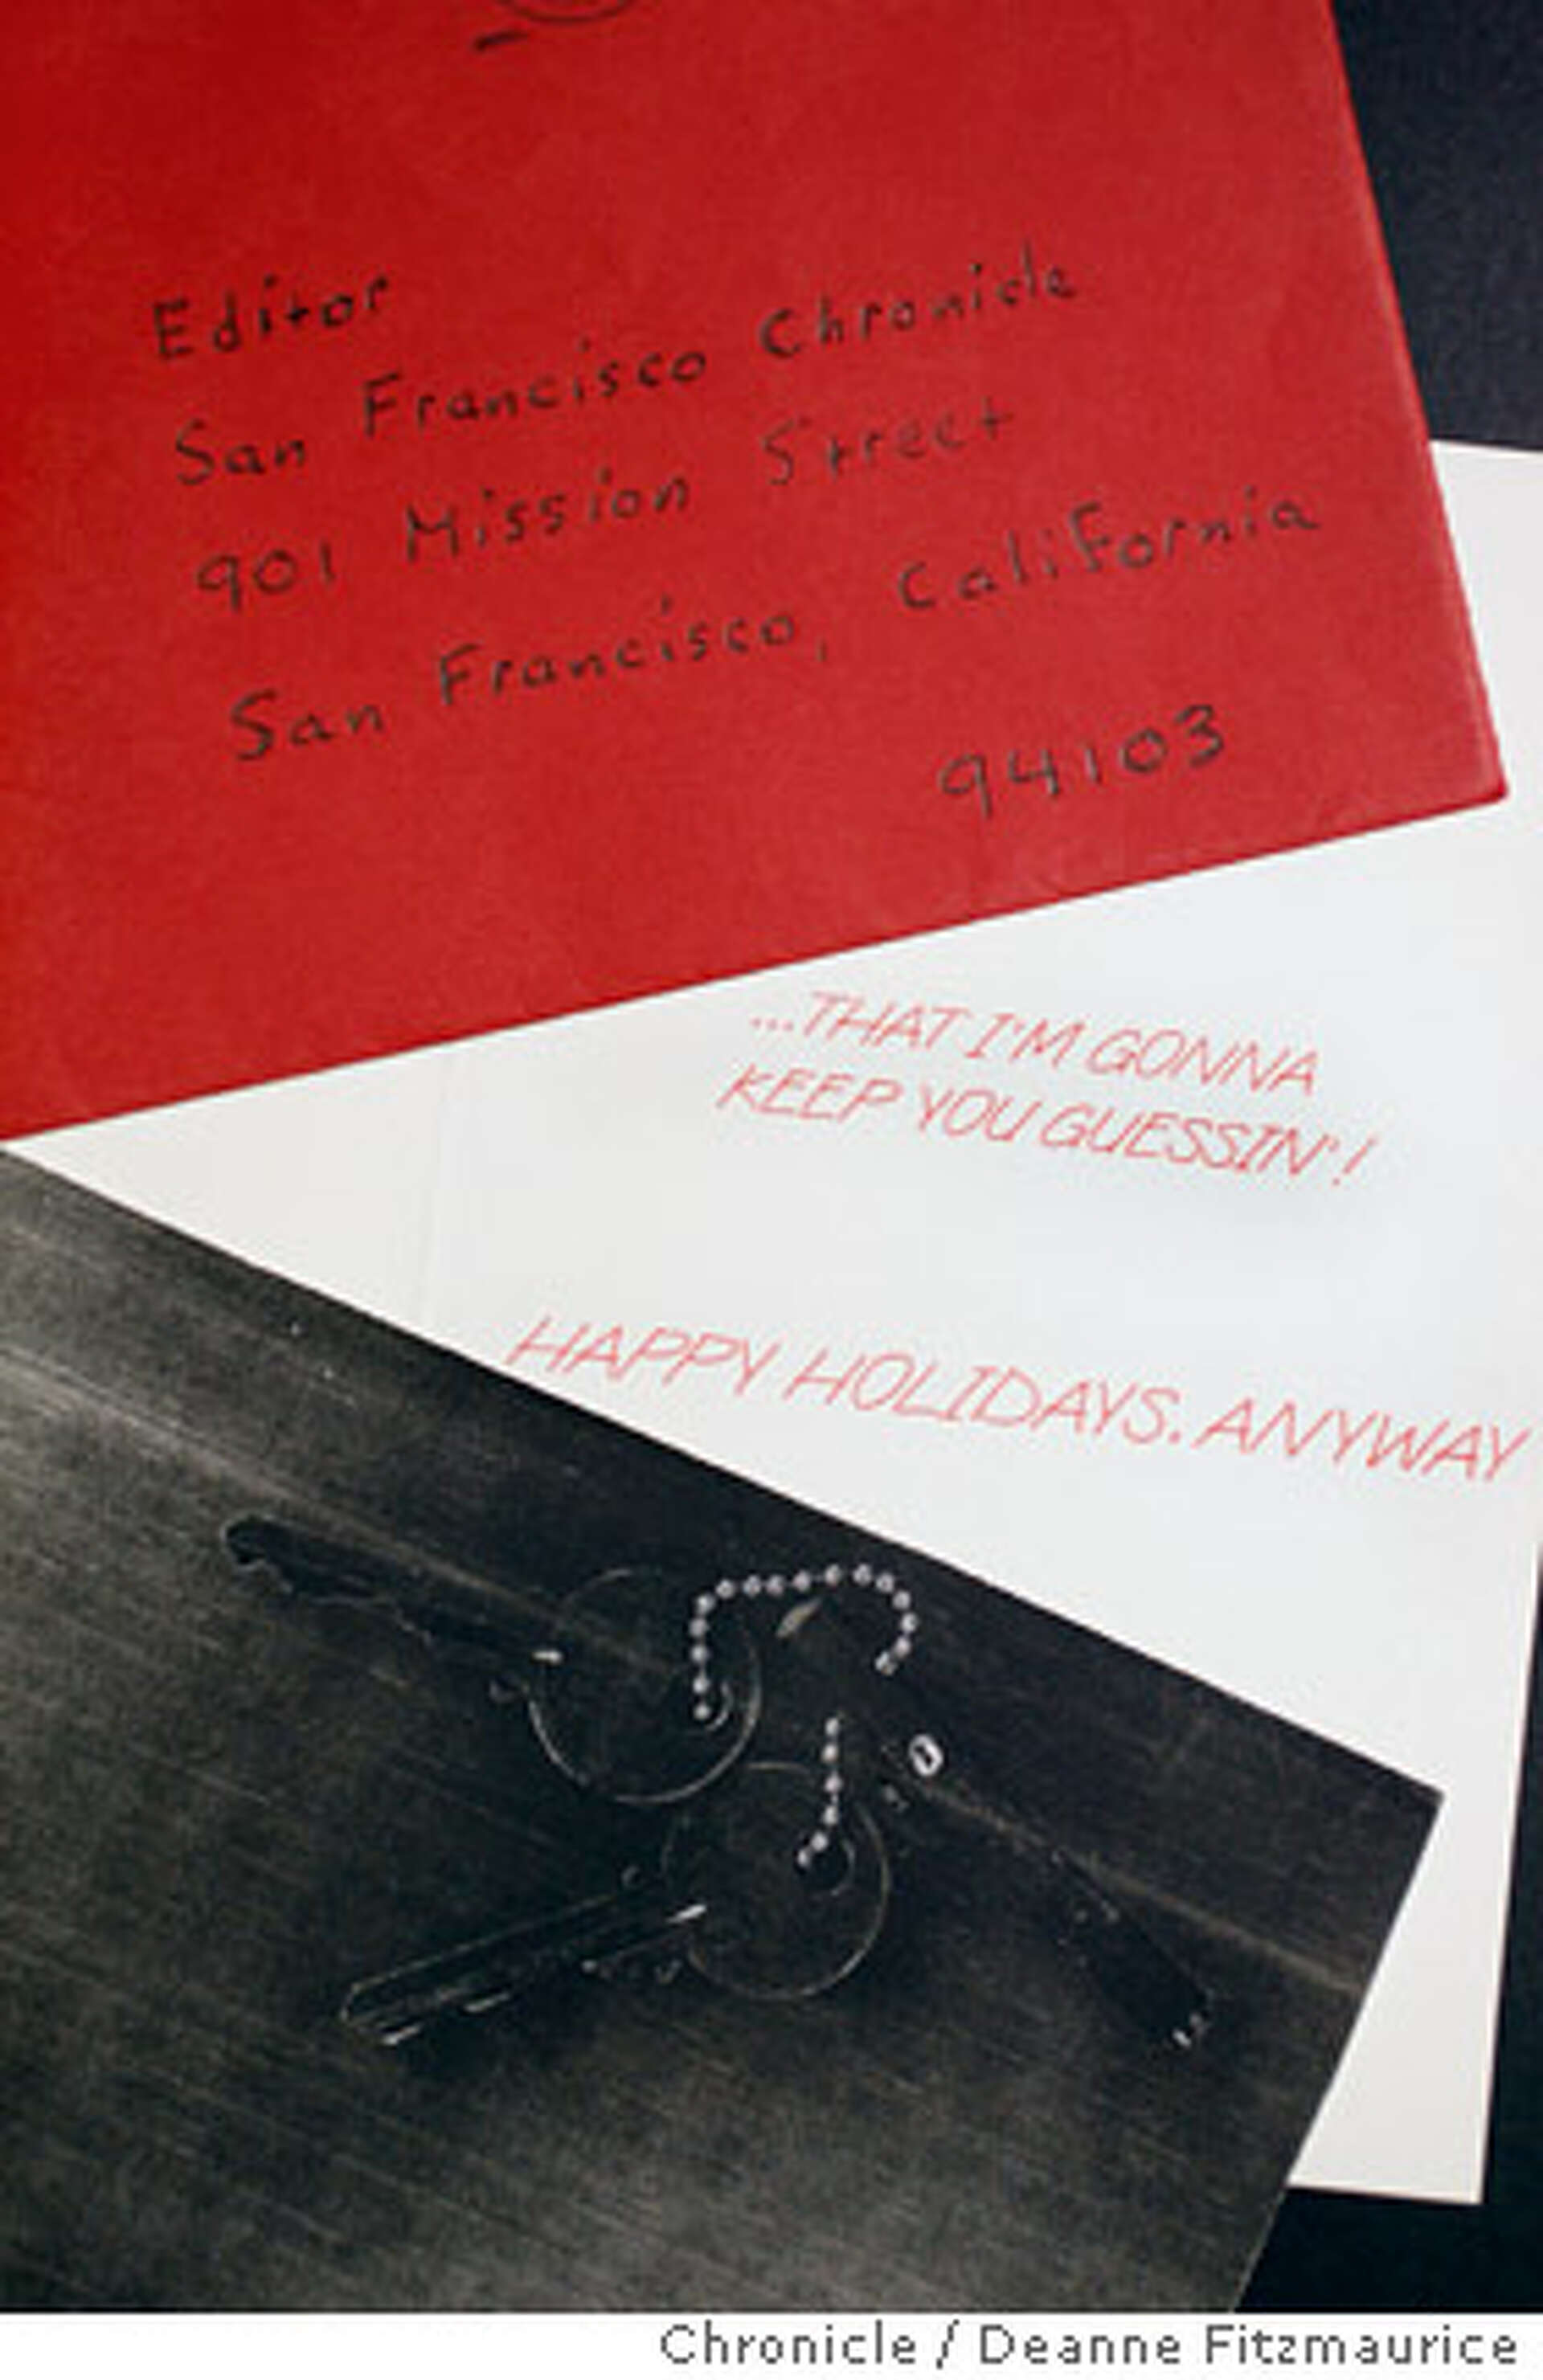 Editor
San Francisco Chronicle
901 Mission Street
San Francisco, California
94103
...THAT I'M GONNA
KEEP YOU GUESSIN'!
HAPPY HOLIDAYS. ANYWAY
Chronicle / Deanne Fitzmaurice